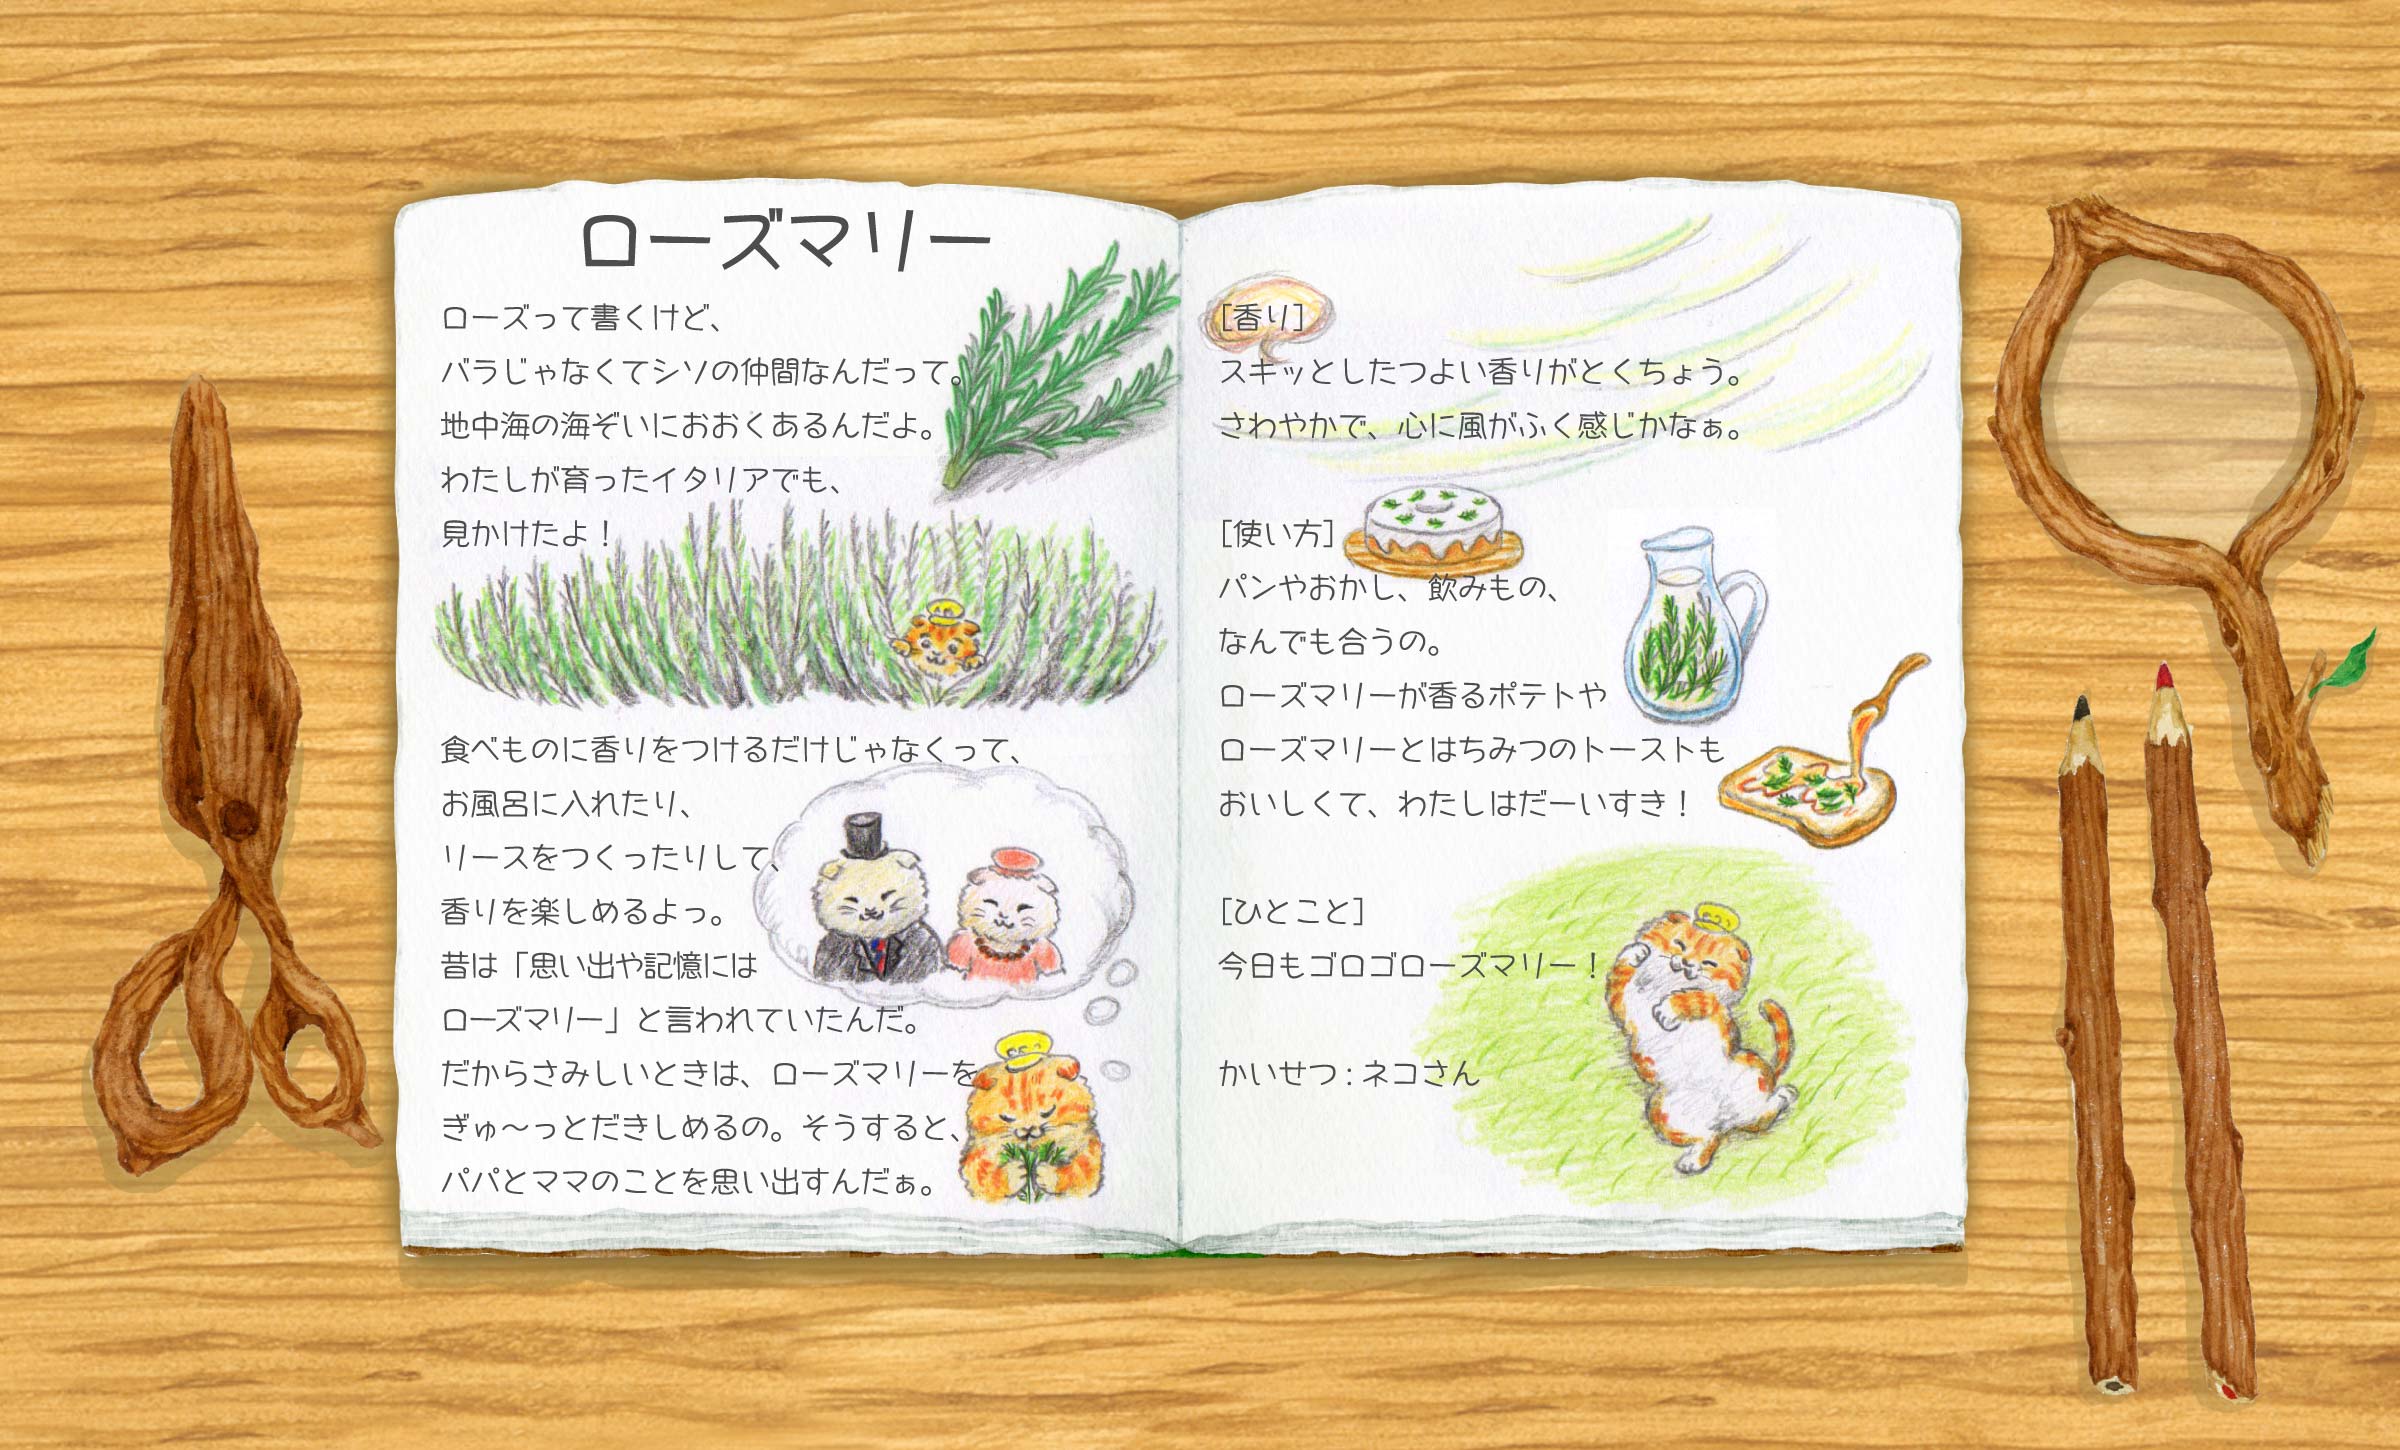 ローズマリー
ローズって書くけど、
バラじゃなくてシソの仲間なんだって。
地中海の海ぞいにおおくあるんだよ。
わたしが育ったイタリアでも、
見かけたよ！
食べものに香りをつけるだけじゃなくって、
お風呂に入れたり、
リースをつくったりして、
香りを楽しめるよっ。
昔は「思い出や記憶には
ローズマリー」と言われていたんだ。
だからさみしいときは、ローズマリーを
ぎゅ〜っとだきしめるの。そうすると、
パパとママのことを思い出すんだぁ。
[香り]
スキッとしたつよい香りがとくちょう。
さわやかで、心に風がふく感じかなぁ。
[使い方]
パンやおかし、飲みもの、
なんでも合うの。
ローズマリーが香るポテトや
ローズマリーとはちみつのトーストも
おいしくて、わたしはだーいすき！
[ひとこと]
今日もゴロゴローズマリー！
かいせつ：ネコさん